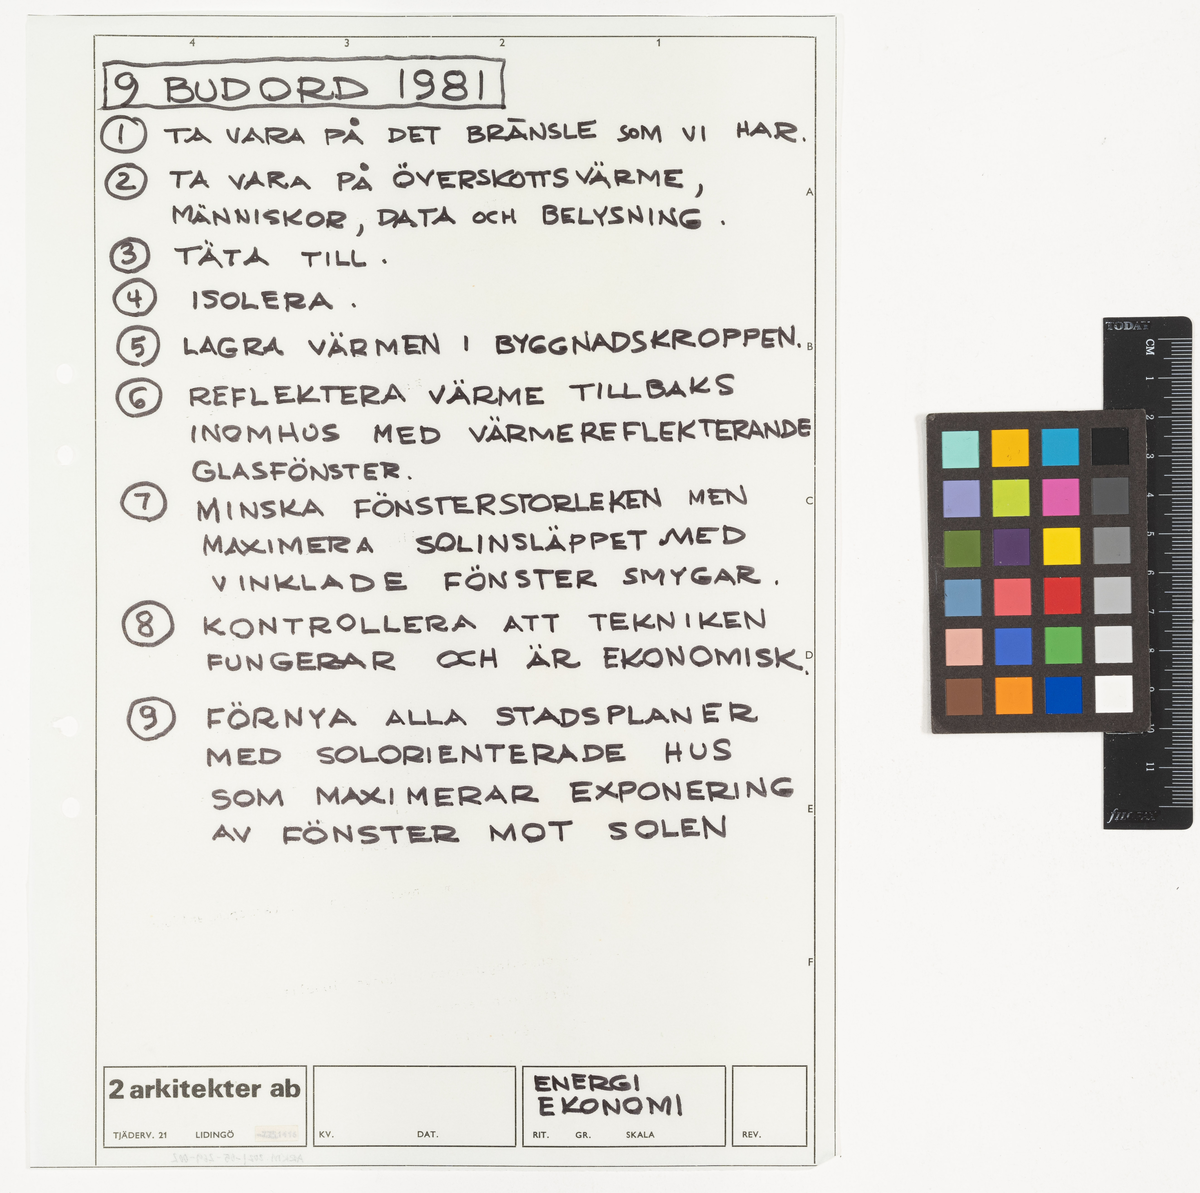 4 3 2 1
9 BUDORD 1981
1 TA VARA PÅ DET BRÄNSLE SOM VI HAR.
2 TA VARA PÅ ÖVERSKOTTSVÄRME,
A
MÄNNISKOR, DATA OCH BELYSNING.
3 TÄTA TILL.
4 ISOLERA.
5 LAGRA VÄRMEN I BYGGNADSKROPPEN.
B
6 REFLEKTERA VÄRME TILLBAKS
INOMHUS MED VÄRMEREFLEKTERANDE
GLASFÖNSTER.
7 MINSKA FÖNSTERSTORLEKEN MEN
C
MAXIMERA SOLINSLÄPPET MED
VINKLADE FÖNSTER SMYGAR.
8 KONTROLLERA ATT TEKNIKEN
FUNGERAR OCH ÄR EKONOMISK.
D
9 FÖRNYA ALLA STADSPLANER
MED SOLORIENTERADE HUS
SOM MAXIMERAR EXPONERING
E
AV FÖNSTER MOT SOLEN
F
2 arkitekter ab
TJÄDERV. 21 LIDINGÖ
KV. DAT.
ENERGI
EKONOMI
RIT. GR. SKALA
REV.
TODAY
CM
1
2
3
4
5
6
7
8
9
10
11